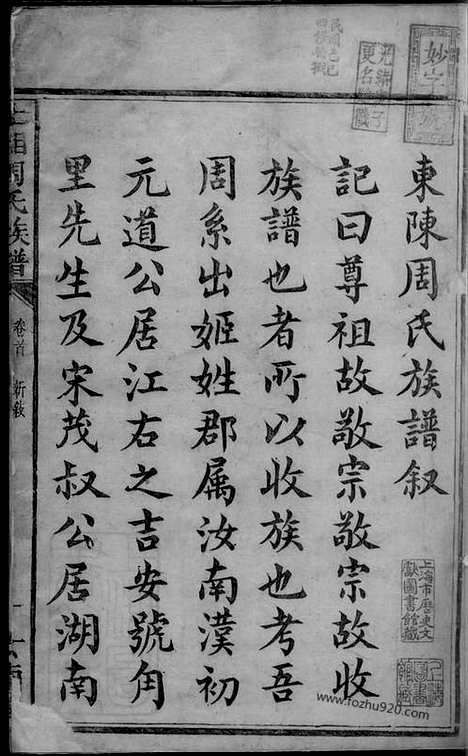 東陳周氏族譜叙
記曰尊祖故敬宗敬宗故收
族譜也者所以收族也考吾
周系出姬姓郡属汝南漢初
元道公居江右之吉安號角
里先生及宋茂叔公居湖南
周氏族譜
卷首
新敘
上海市歷史文
獻圖書館藏
www.fozhu920.com